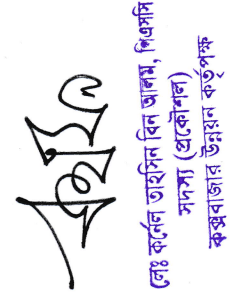 লেঃ কর্নেল তাহসিন বিন আলম, পিএসসি
সদস্য (প্রকৌশল)
কক্সবাজার উন্নয়ন কর্তৃপক্ষ